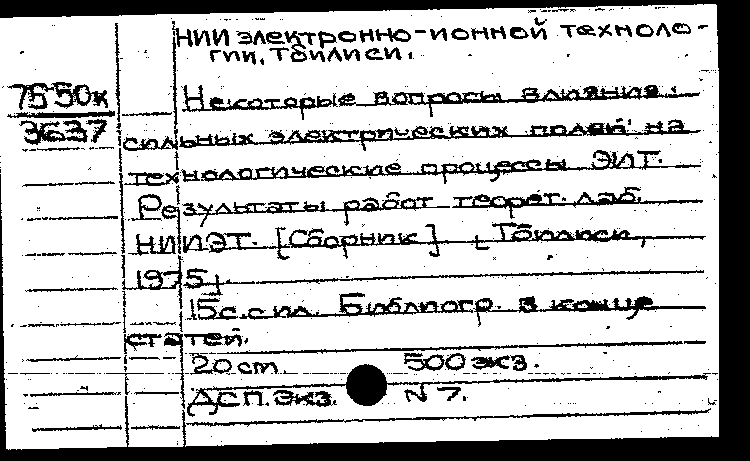 НИИ электронно-ионной техноло-
гии, Тбилиси.
7550к
3637
Некоторые вопросы влияния
сильных электрических полей на
технологические процессы ЭИТ.
Результаты работ теорет. лаб.
НИИЭТ. [Сборник] Тбилиси,
1975
15с.с ил. Библиогр. в конце
статей.
20 cm. 500 экз.
ДСП. Экз. N 7.